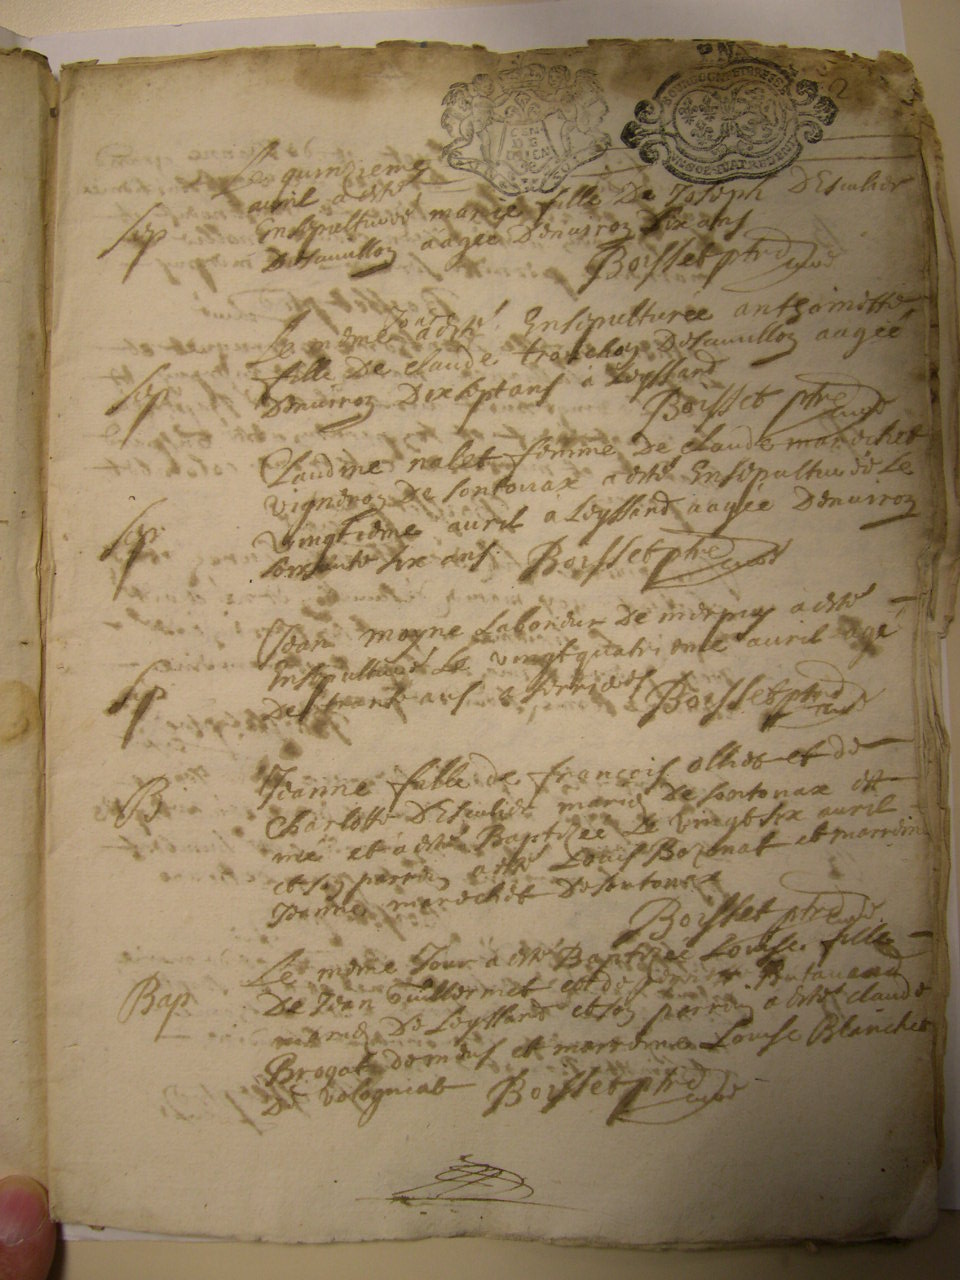 2
Le quinzieme
avril a esté
sep
Ensepulturée marie fille De Joseph DEsculier
Desauvillon aagée Denuiron Dix ans
Boisset ptre curé
Le méme Jour a esté Ensepulturee anthoinette
sep
fille De claude tronchon Desauvillon aagée
Denuiron Dixsept ans a Leyssard
Boisset ptre curé
Claudine nalet femme De claude marechet
vigneron De sontonax a esté Ensepulturée Le
sep
vingtieme avril a Leyssard aagée Denuiron
soixante six ans Boisset ptre curé
Jean moyne Laboureur De a esté
Ensepulturé Le vingt quatrieme avril agé
sep
De trante ans a serrieres Boisset ptre curé
Jeanne fille de francois olliet et de
B
Charlotte DEsculier mariez De sontonax est
née et a esté Baptisée Le vingt six avril
et son parrin a esté Louis Bozonat et marrine
Jeanne marechet Desontonax
Boisset ptre curé
Le méme Jour a esté Baptisée Louise fille
Bap
De Jean Guillermet et de
mariez De Leyssard et son parrin a esté claude
Brogat et marrine Louise Blanchet
De vologniat Boisset ptre curé